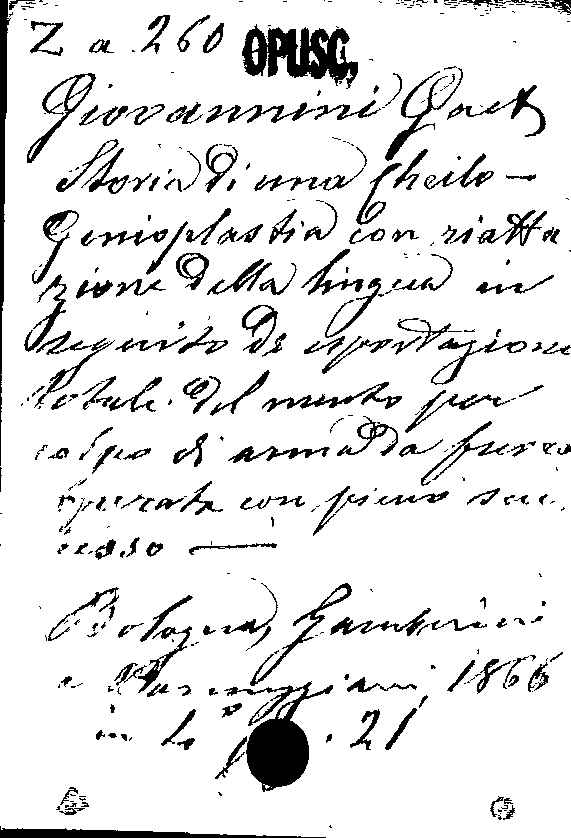 Z a 260 OPUSC.
Giovannini Gaet
Storia di una Cheilo-
Genioplastia con riatta
zione della lingua in
seguito di esportazione
totale del mento per
colpo di arma da fuoco
operata con pieno suc
cesso —
Bologna, Gamberini
e Parmeggiani, 1866
in 4° p. 21